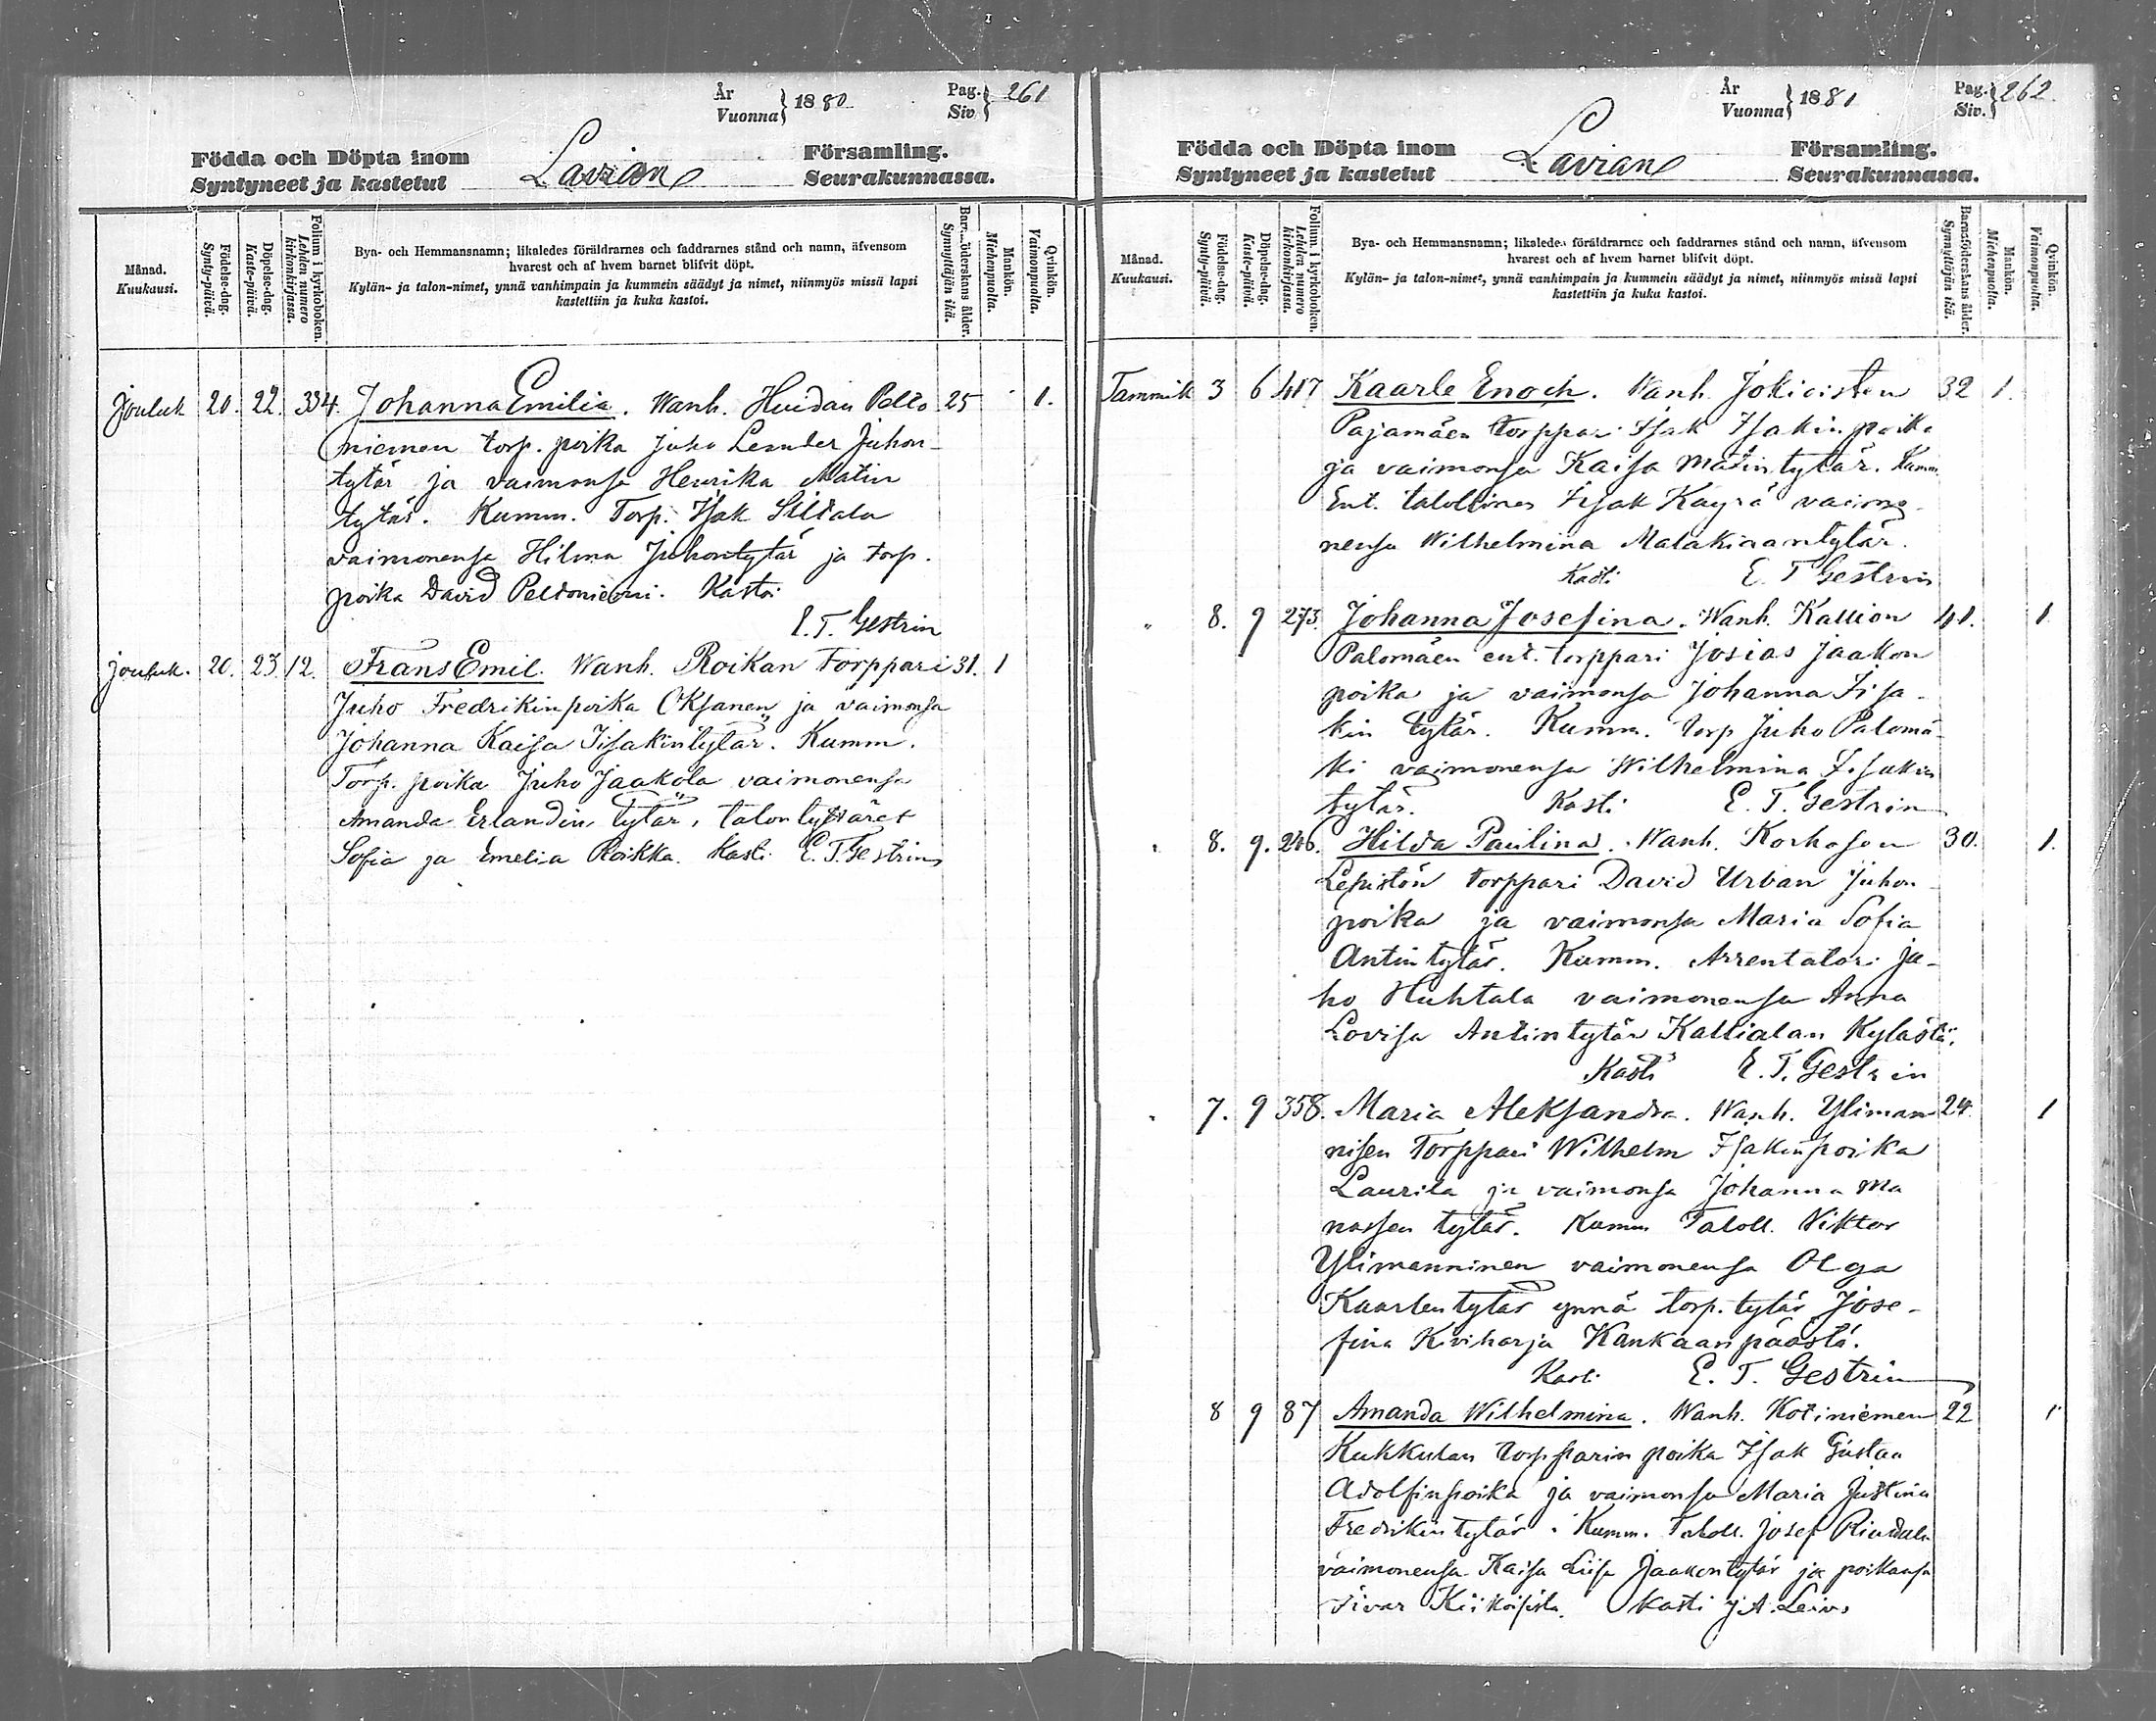 År
Vuonna } 1880
Pag.
Siv } 261
Födda och Döpta inom
Syntyneet ja kastetut
Lavian
Församling.
Seurakunnassa.
Månad.
Kuukausi.
Födelse-dag.
Synty-päivä.
Döpelse-dag.
Kaste-päivä.
Folium i kyrkoboken.
Lehden numero
kirkonkirjassa.
Bya- och Hemmansnamn; likaledes föräldrarnes och faddrarnes stånd och namn, äfvensom
hvarest och af hvem barnet blifvit döpt.
Kylän- ja talon-nimet, ynnä vanhimpain ja kummein säädyt ja nimet, niinmyös missä lapsi
kastettiin ja kuka kastoi.
Synnyttäjän ikä.
Mankön.
Miehenpuolta.
Qvinkön.
Vaimonpuolta.
Jouluk 20. 22. 334. Johanna Emilia. Wanh. Huidan Pelto 25 1.
niemen torp. poika Juho Leander Juhon-
tytär ja vaimonsa Henrika Matin
tytär. Kumm. Torp. Isak
vaimonensa Hilma Juhontytär ja torp.
poika David Peltoniemi. Kastoi
E. T. Gestrin
Jouluk. 20. 23. 12. Frans Emil. Wanh. Roikan Torppari 31. 1
Juho Fredrikinpoika Oksanen ja vaimonsa
Johanna Kaisa Iisakintytär. Kumm.
Torp. poika Juho Jaakola vaimonensa
Amanda Erlandin tytär, talon tyttäret
Sofia ja Emelia Roikka. Kasti E. T. Gestrin
År
Vuonna } 1881
Pag.
Siv. } 262.
Födda och Döpta inom
Syntyneet ja kastetut
Lavian
Församling.
Seurakunnassa.
Månad.
Kuukausi.
Födelse-dag.
Synty-päivä.
Döpelse-dag.
Kaste-päivä.
Folium i kyrkoboken.
Lehden numero
kirkonkirjassa.
Bya- och Hemmansnamn; likaledes föräldrarnes och faddrarnes stånd och namn, äfvensom
hvarest och af hvem barnet blifvit döpt.
Kylän- ja talon-nimet, ynnä vanhimpain ja kummein säädyt ja nimet, niinmyös missä lapsi
kastettiin ja kuka kastoi.
Barnsföderskans ålder.
Synnyttäjän ikä.
Mankön.
Miehenpuolta.
Qvinkön.
Vaimonpuolta.
Tammik 3 6 417 Kaarle Enoch. Wanh. Jokioisten 32 1.
Pajamäen torppari Isak Isakin poika
ja vaimonsa Kaisa Matintytär. Kumm.
Ent. talollinen Iisak Käyrä vaimo-
nensa Wilhelmina Malakiaantytär.
Kasti E. T Gestrin
" 8. 9 273. Johanna Josefina. Wanh. Kallion 41. 1
Palomäen ent. torppari Josias Jaakon
poika ja vaimonsa Johanna Iisa-
kin tytär. Kumm. torp Juho Palomä-
ki vaimonensa Wilhelmina Iisakin
tytär. Kasti E. T. Gestrin
" 8. 9. 246. Hilda Paulina. Wanh. Korhosen 30. 1.
Lepistön torppari David Urban Juhon-
poika ja vaimonsa Maria Sofia
Antintytär. Kumm. Arrentatori Ju-
ho Huhtala vaimonensa Anna
Lovisa Antintytär Kallialan Kylästä.
Kasti E. T. Gestrin
" 7. 9 358. Maria Aleksandra. Wanh. Yliman 24. 1
nisen Torppari Wilhelm Isakinpoika
Laurila ja vaimonsa Johanna Ma
nassen tytär. Kumm Taloll. Viktor
Ylimanninen vaimonensa Olga
Kaarlentytär ynnä torp. tytär Jose-
fina Kiviharja Kankaanpäästä.
Kasti E. T. Gestrin
8 9 87 Amanda Wilhelmina. Wanh. Kotiniemen 22 1
Kukkulan torpparin poika Isak Gustaa
Adolfinpoika ja vaimonsa Maria Justina
Fredrikin tytär. Kumm. Taloll. Josef
vaimonensa Kaisa Liisa Jaakontytär ja poikansa
Kiikoisista. Kasti J. A.